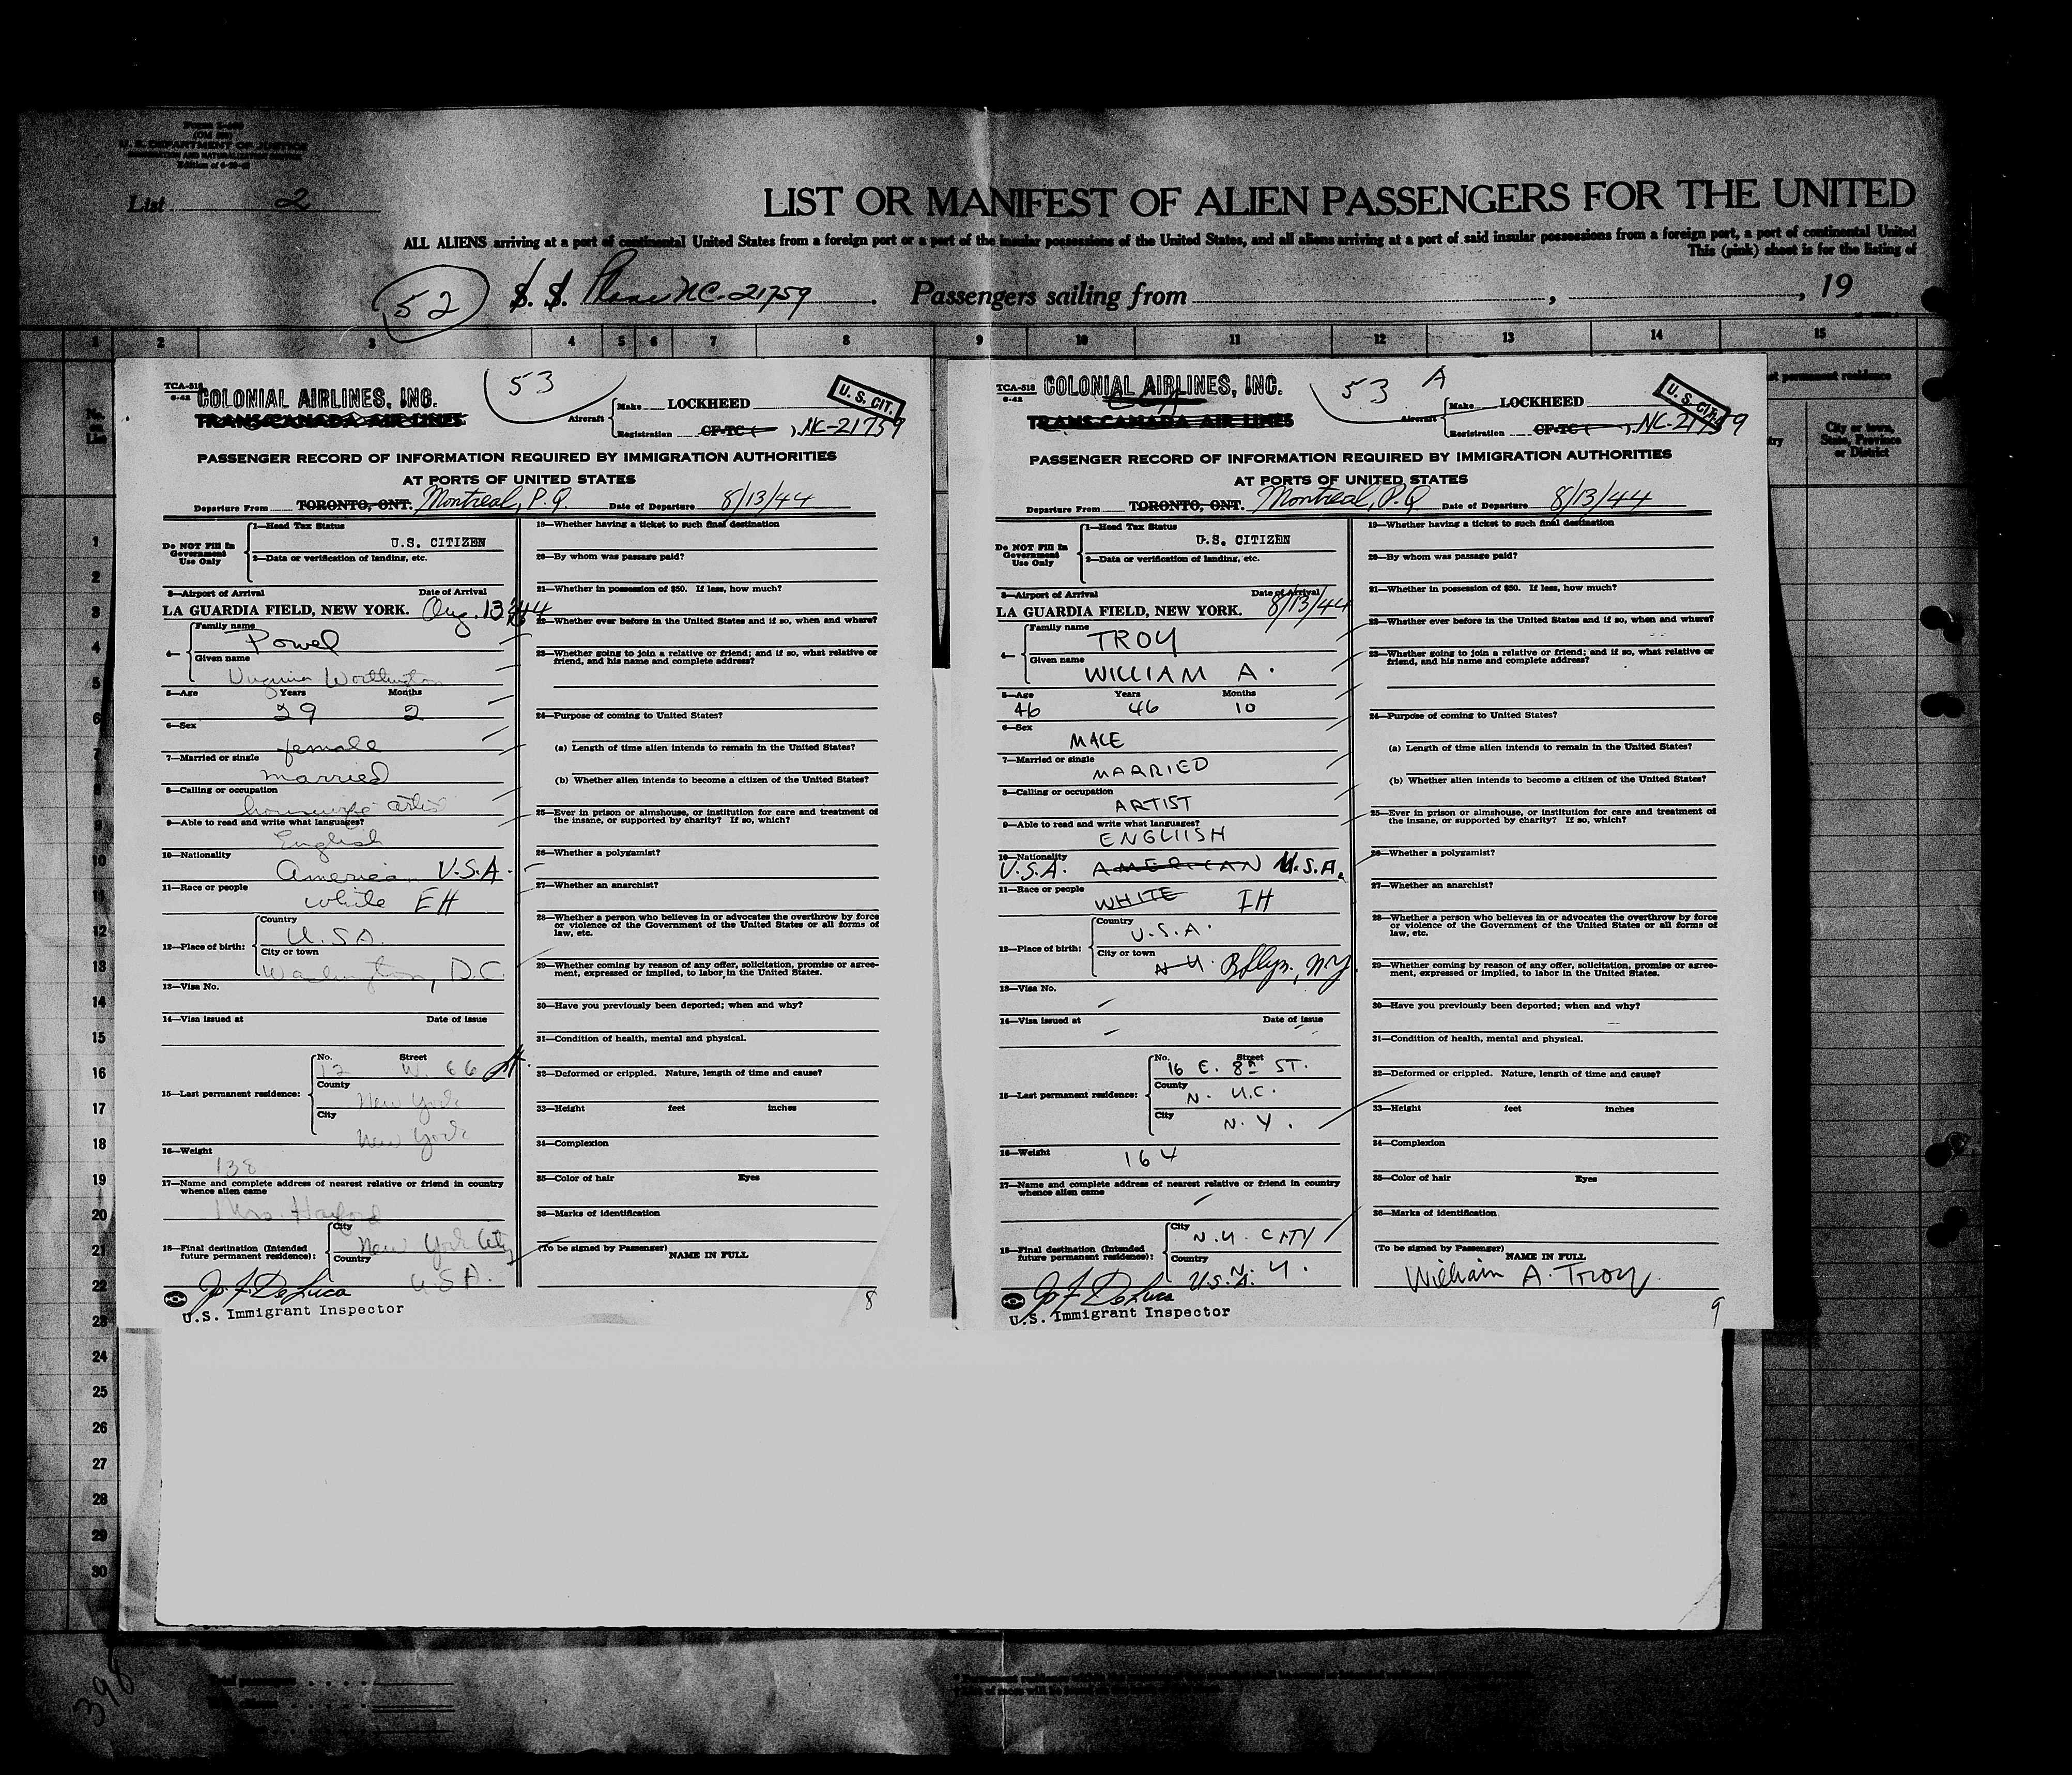 Form I-415
U. S. DEPARTMENT OF JUSTICE
IMMIGRATION AND NATURALIZATION SERVICE
List 2
LIST OR MANIFEST OF ALIEN PASSENGERS FOR THE UNITED
ALL ALIENS arriving at a port of continental United States from a foreign port or a port of the insular possessions of the United States, and all aliens arriving at a port of said insular possessions from a foreign port, a port of continental United
This (pink) sheet is for the listing of
52 S. S. Plane NC-21759 . Passengers sailing from , , 19
1 2 3 4 5 6 7 8 9 10 11 12 13 14 15
No. on List
permanent residence
City or town, State, Province or District
TCA-518
6-42
COLONIAL AIRLINES, INC.
TRANS-CANADA AIR LINES
53
U. S. CIT.
Aircraft
Make LOCKHEED
Registration CF-TC ( ) NC-21759
PASSENGER RECORD OF INFORMATION REQUIRED BY IMMIGRATION AUTHORITIES
AT PORTS OF UNITED STATES
Departure From TORONTO, ONT. Montreal, P.Q. Date of Departure 8/13/44
Do NOT Fill In Government Use Only
1—Head Tax Status
U.S. CITIZEN
2—Data or verification of landing, etc.
3—Airport of Arrival Date of Arrival
LA GUARDIA FIELD, NEW YORK. Aug. 13 '44
4— Family name
Powel
Given name
Virginia Worthington
5—Age Years Months
29 2
6—Sex
female
7—Married or single
married
8—Calling or occupation
housewife - artist
9—Able to read and write what languages?
English
10—Nationality
American U.S.A.
11—Race or people
white EH
12—Place of birth:
Country
U.S.A.
City or town
Washington, D.C.
13—Visa No.
14—Visa issued at Date of issue
15—Last permanent residence:
No. Street
12 W. 66
County
New York
City
New York
16—Weight
138
17—Name and complete address of nearest relative or friend in country whence alien came
Mrs.
18—Final destination (Intended future permanent residence):
City
New York City
Country
U.S.A.
J. F. DeLuca
U.S. Immigrant Inspector
19—Whether having a ticket to such final destination
20—By whom was passage paid?
21—Whether in possession of $50. If less, how much?
22—Whether ever before in the United States and if so, when and where?
23—Whether going to join a relative or friend; and if so, what relative or
friend, and his name and complete address?
24—Purpose of coming to United States?
(a) Length of time alien intends to remain in the United States?
(b) Whether alien intends to become a citizen of the United States?
25—Ever in prison or almshouse, or institution for care and treatment of
the insane, or supported by charity? If so, which?
26—Whether a polygamist?
27—Whether an anarchist?
28—Whether a person who believes in or advocates the overthrow by force
or violence of the Government of the United States or all forms of
law, etc.
29—Whether coming by reason of any offer, solicitation, promise or agree-
ment, expressed or implied, to labor in the United States.
30—Have you previously been deported; when and why?
31—Condition of health, mental and physical.
32—Deformed or crippled. Nature, length of time and cause?
33—Height feet inches
34—Complexion
35—Color of hair Eyes
36—Marks of identification
(To be signed by Passenger)
NAME IN FULL
8
TCA-518
6-42
COLONIAL AIRLINES, INC.
TRANS-CANADA AIR LINES
53 A
U. S. CIT.
Aircraft
Make LOCKHEED
Registration CF-TC ( ) NC-21759
PASSENGER RECORD OF INFORMATION REQUIRED BY IMMIGRATION AUTHORITIES
AT PORTS OF UNITED STATES
Departure From TORONTO, ONT. Montreal, P.Q. Date of Departure 8/13/44
Do NOT Fill In Government Use Only
1—Head Tax Status
U.S. CITIZEN
2—Data or verification of landing, etc.
3—Airport of Arrival Date of Arrival
LA GUARDIA FIELD, NEW YORK. 8/13/44
4— Family name
TROY
Given name
WILLIAM A.
5—Age Years Months
46 46 10
6—Sex
MALE
7—Married or single
MARRIED
8—Calling or occupation
ARTIST
9—Able to read and write what languages?
ENGLIISH
10—Nationality
U.S.A. AMERICAN U.S.A.
11—Race or people
WHITE IH
12—Place of birth:
Country
U.S.A.
City or town
N.Y. Bklyn., NY
13—Visa No.
14—Visa issued at Date of issue
15—Last permanent residence:
No. Street
16 E. 8th ST.
County
N.Y.C.
City
N.Y.
16—Weight
164
17—Name and complete address of nearest relative or friend in country
whence alien came
18—Final destination (Intended future permanent residence):
City
N.Y. CITY
Country
N.Y.
U.S.A.
J. F. DeLuca
U.S. Immigrant Inspector
19—Whether having a ticket to such final destination
20—By whom was passage paid?
21—Whether in possession of $50. If less, how much?
22—Whether ever before in the United States and if so, when and where?
23—Whether going to join a relative or friend; and if so, what relative or
friend, and his name and complete address?
24—Purpose of coming to United States?
(a) Length of time alien intends to remain in the United States?
(b) Whether alien intends to become a citizen of the United States?
25—Ever in prison or almshouse, or institution for care and treatment of
the insane, or supported by charity? If so, which?
26—Whether a polygamist?
27—Whether an anarchist?
28—Whether a person who believes in or advocates the overthrow by force
or violence of the Government of the United States or all forms of
law, etc.
29—Whether coming by reason of any offer, solicitation, promise or agree-
ment, expressed or implied, to labor in the United States.
30—Have you previously been deported; when and why?
31—Condition of health, mental and physical.
32—Deformed or crippled. Nature, length of time and cause?
33—Height feet inches
34—Complexion
35—Color of hair Eyes
36—Marks of identification
(To be signed by Passenger)
NAME IN FULL
William A. Troy
9
1
2
3
4
5
6
7
8
9
10
11
12
13
14
15
16
17
18
19
20
21
22
23
24
25
26
27
28
29
30
398